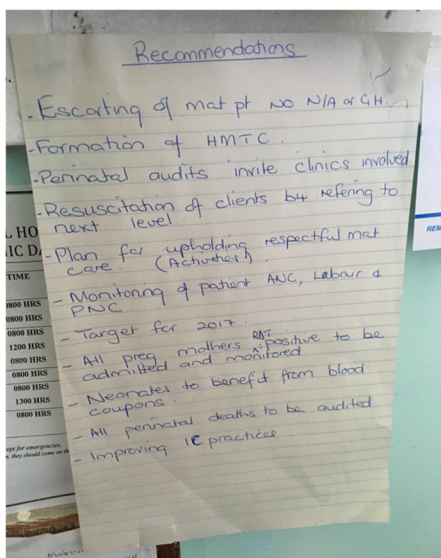 Recommendations
- Escorting of mat pt NO N/A or GH.
- Formation of HMTC.
- Perinatal audits invite clinics involved
- Resuscitation of clients b4 refering to
next level.
- Plan for upholding respectful mat
care. (Activities)
- Monitoring of patient ANC, Labour &
PNC.
- Target for 2017.
- All preg mothers RDT positive to be
admitted and monitored
- Neonates to benefit from blood
coupons.
- All perinatal deaths to be audited
- Improving IC practices
L HO
IC DA
TIME
0800 HRS
0800 HRS
0800 HRS
1200 HRS
0800 HRS
0800 HRS
0800 HRS
1300 HRS
0800 HRS
ept for emergencies.
, they should come on th
REM